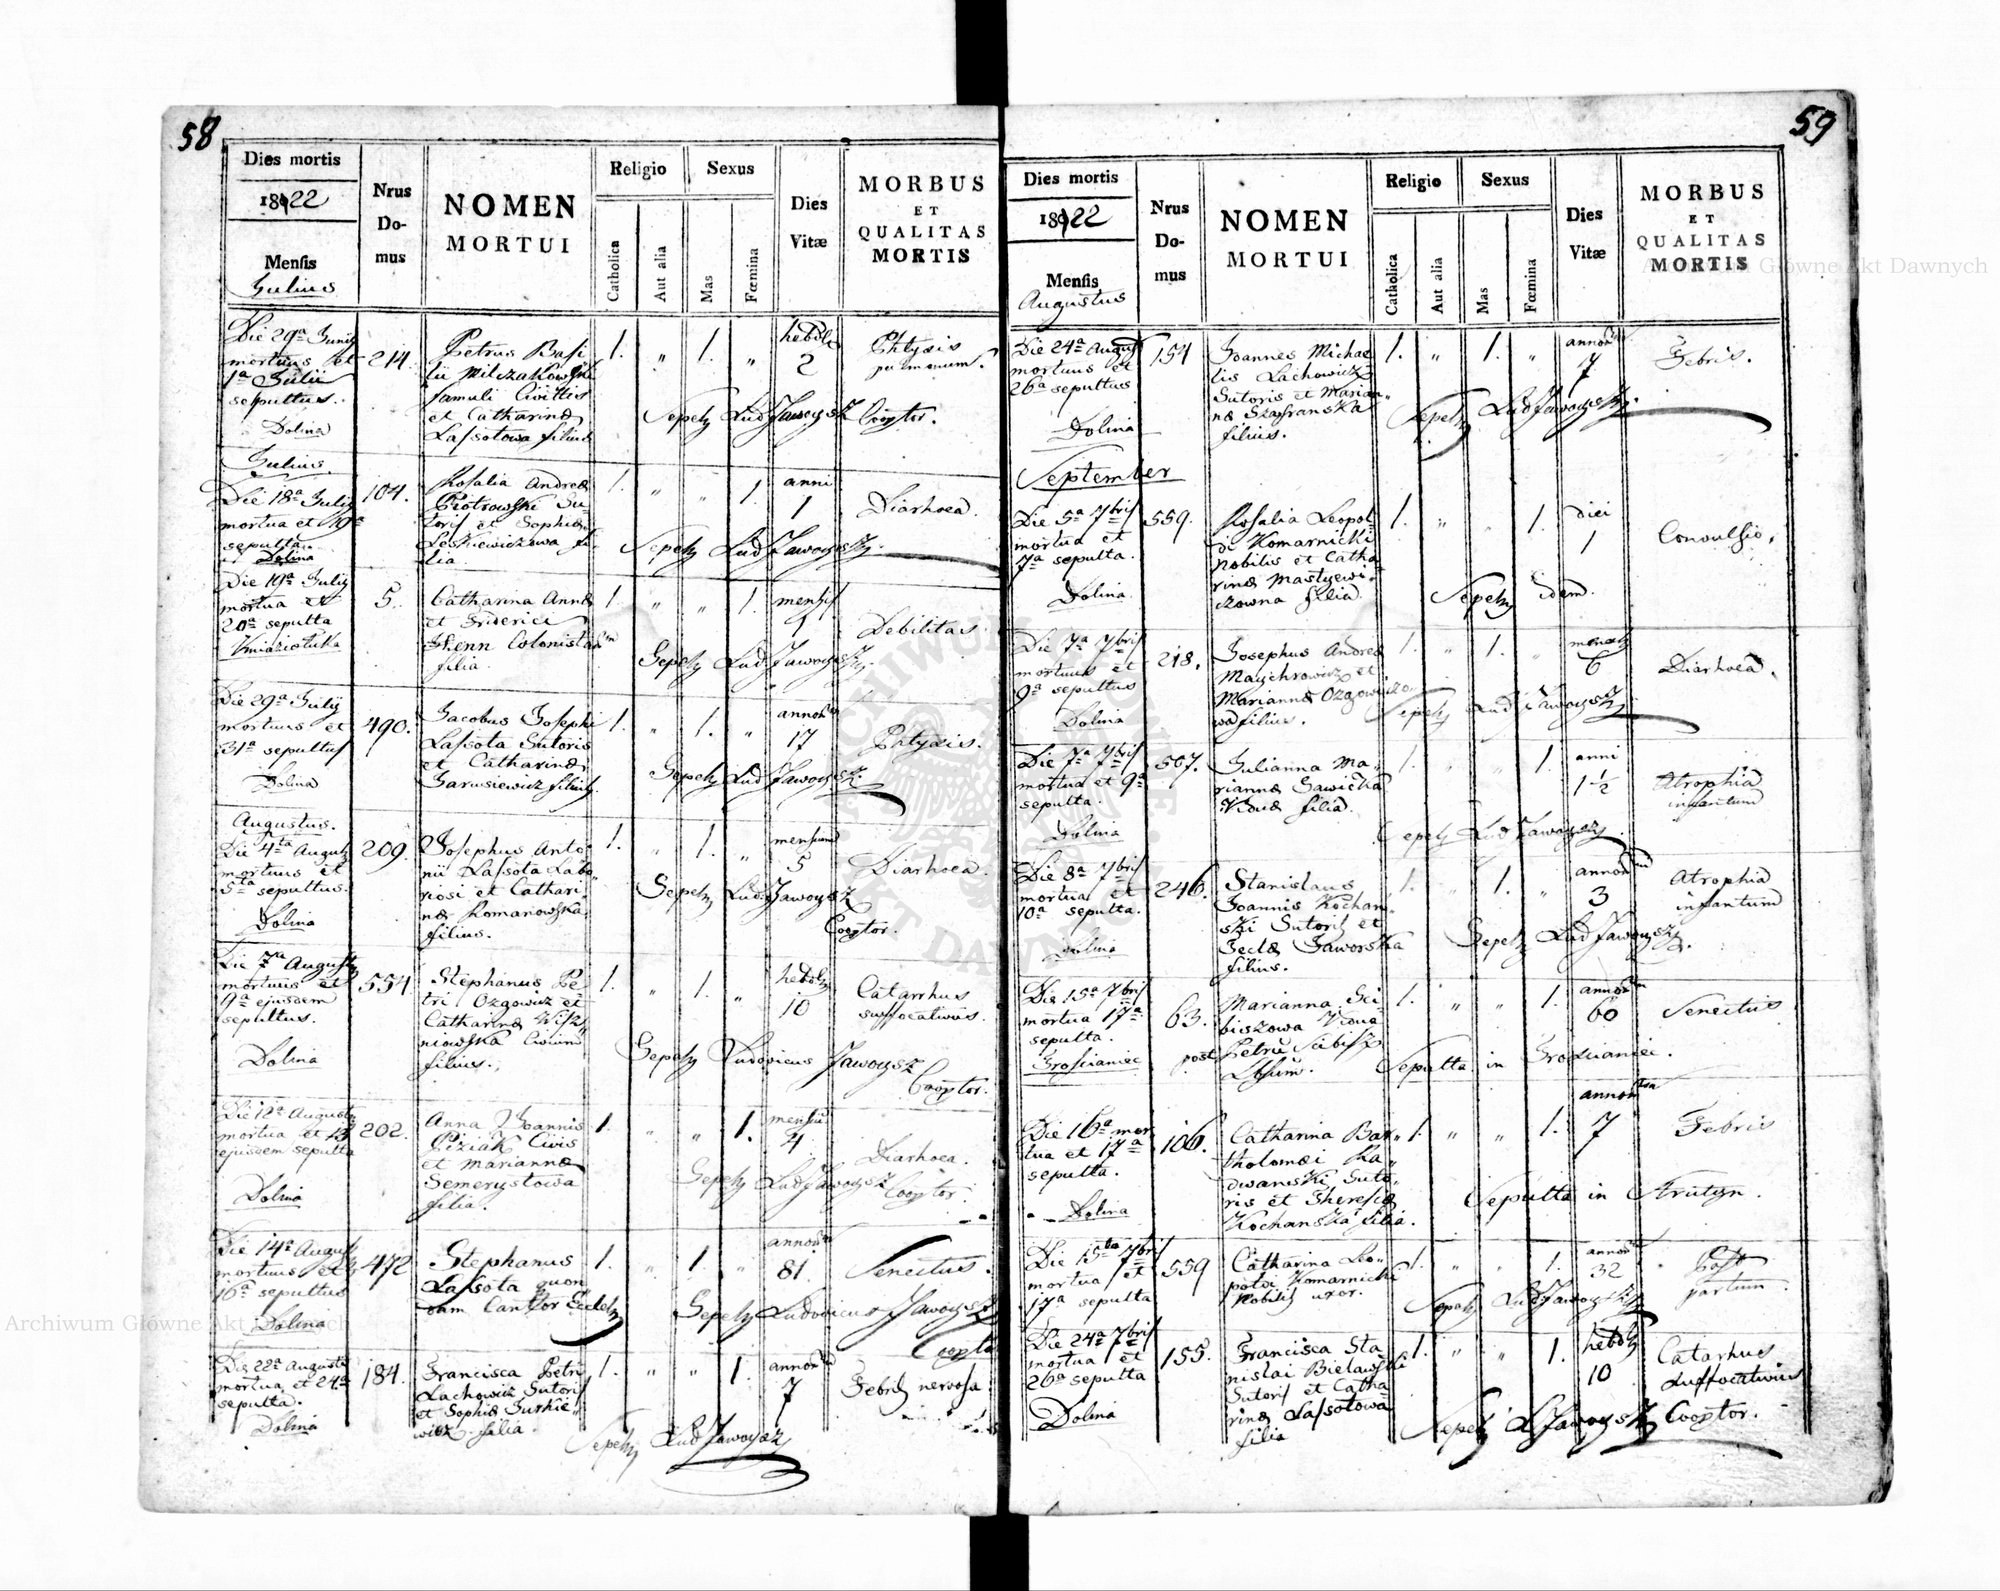 58
Dies mortis
1822
Mensis
Julius
Nrus
Do-
mus
NOMEN
MORTUI
Religio
Catholica
Aut alia
Sexus
Mas
Fœmina
Dies
Vitæ
MORBUS
ET
QUALITAS
MORTIS
Die 29a Junij
mortuus et
1a Julii
sepultus.
Dolina
214.
Petrus Basi
lii Milczakowski
famuli Civittis
et Catharinæ
Lassotowa filius
1. " 1. "
hebdo
2
Phtysis
pulmonum.
Sepely Lud Jaworysz Cooptor.
Julius.
Die 18a Julij
mortua et 19a
sepulta.
Dolina
104.
Rosalia Andreæ
Piotrowski Su-
toris et Sophiæ
Leskiewiczowa fi-
lia.
1. " " 1.
anni
1
Diarhoea.
Sepely Lud Jaworysz
Die 19a Julij
mortua et
20a sepulta
Kniaziołuka
5.
Catharina Annæ
et Friderici
Henn Colonista
filia.
1. " " 1.
mensis
1
Debilitas
Sepely Lud Jaworysz
Die 29a Julij
mortuus et
31a sepultus
Dolina
490.
Jacobus Josephi
Lassota Sutoris
et Catharinæ
Jarusiewicz filius.
1. " 1. "
annor
17
Phtysis.
Sepely Lud Jaworysz
Augustus.
Die 4ta Augusti
mortuus et
5ta sepultus.
Dolina
209.
Josephus Anto-
nii Lassota Labo-
riosi et Cathari
næ Romanowska
filius.
1. " 1. "
mensium
5
Diarhoea.
Sepely Lud Jaworysz
Cooptor.
Die 7a Augusti
mortuus et
9a ejusdem
sepultus.
Dolina
554
Stephanus Pe
tri Ozgowicz et
Catharinæ Wisz
niowska Civium
filius.
1. " 1. "
hebdo
10
Catarrhus
suffocativus.
Sepely Ludovicus Jaworysz
Cooptor.
Die 12a Augusti
mortua et 13
ejusdem sepulta
Dolina
202.
Anna Joannis
Piziak Civis
et Mariannæ
Semerystowa
filia.
1. " " 1.
mensiu
4
Diarhoea.
Sepely Lud Jaworysz Cooptor
Die 14a Augusti
mortuus et
16a sepultus
Dolina
472
Stephanus
Lassota quon
dam Cantor Eccl
1. " 1. "
annor
81.
Senectus.
Sepely Ludovicus Jaworysz
Coopto
Die 22a Augusti
mortua et 24a
sepulta.
Dolina
184.
Francisca Petri
Lachowicz Sutoris
et Sophiæ Jurkie-
wicz filia.
1. " " 1.
annor
7
Febris nervosa
Sepely Lud Jaworysz
59
Dies mortis
1822
Mensis
Augustus
Nrus
Do-
mus
NOMEN
MORTUI
Religio
Catholica
Aut alia
Sexus
Mas
Fœmina
Dies
Vitæ
MORBUS
ET
QUALITAS
MORTIS
Die 24a August
mortuus et
26a sepultus
Dolina
154
Joannes Michae
lis Lachowicz
Sutoris et Marian-
næ Szafranska
filius.
1. " 1. "
annor
7
Febris.
Sepely Lud Jaworysz
September
Die 5a 7bris
mortua et
7a sepulta.
Dolina
559.
Rosalia Leopol-
di Komarnicki
Nobilis et Catha
rinæ Mastyewi-
czowna filia
1. " " 1.
diei
1
Convulsio.
Sepely idem.
Die 7a 7bris
mortuus et
9a sepultus
Dolina
218.
Josephus Andreæ
Maychrowicz et
Mariannæ Ozgowiczo
wa filius.
1. " 1. "
mensis
6
Diarhoea.
Sepely Lud Jaworysz
Die 7a 7bris
mortua et 9a
sepulta.
Dolina
507.
Julianna Ma-
riannæ Sawicka
Viduæ filia.
1. " " 1.
anni
1 1/2
Atrophia
infantum
Sepely Lud Jaworysz
Die 8a 7bris
mortua et
10a sepulta.
Dolina
246.
Stanislaus
Joannis Kochan-
ski Sutoris et
Teclæ Jaworska
filius.
1. " 1. "
annor
3
Atrophia
infantum
Sepely Lud Jaworysz
Die 15a 7bris
mortua 17a
sepulta.
Hrosianiec
63.
Marianna Sci
biszowa Vidua
post Petru Scibisz
1. " " 1.
annor
60
Senectus
Sepulta in Hroszaniec.
Die 16a mor
tua et 17a
sepulta.
Dolina
106.
Catharina Bar-
tholomæi Ra-
dwanski Suto-
ris et Theresiæ
Kochanska filia.
1. " " 1.
annor
7
Febris
Sepulta in Strutyn.
Die 15ta 7bris
mortua et
17a sepulta
559
Catharina Leo-
poldi Komarnicki
Nobilis uxor.
1. " " 1.
annor
32
Post
partum.
Sepely Lud Jaworysz
Die 24a 7bris
mortua et
26a sepulta
Dolina
155.
Francisca Sta-
nislai Bielawski
Sutoris et Catha-
rinæ Lassotowa
filia
1. " " 1.
hebdo
10
Catarhus
suffocativus
Sepely L Jaworysz Cooptor.
Archiwum Główne Akt Dawnych
Archiwum Główne Akt Dawnych
ARCHIWUM GŁÓWNE AKT DAWNYCH